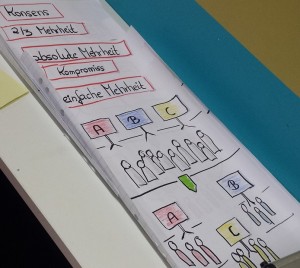 Konsens
2/3 Mehrheit
absolute Mehrheit
Kompromiss
einfache Mehrheit
A B C
B
A
C